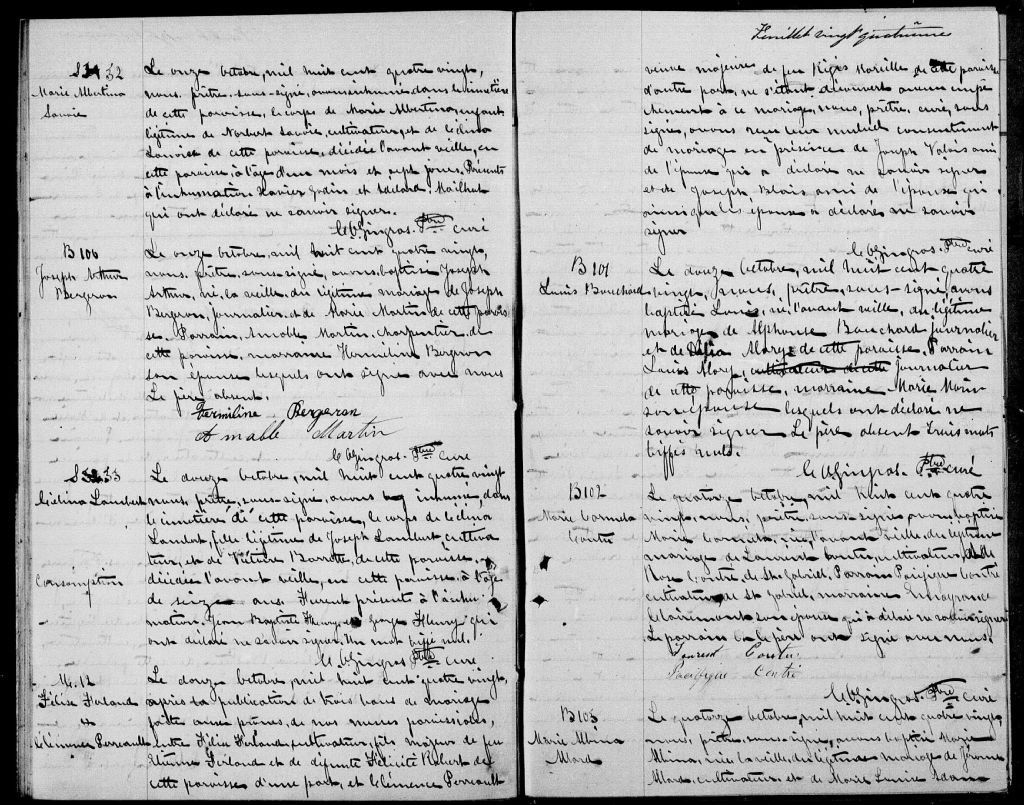 S 32
Marie Albertina
Savoie
Le onze Octobre, mil huit cent quatre vingt,
nous, prêtre, sous-signé, avons inhumé, dans le cimetière
de cette paroisse, le corps de Marie Albertina, enfant
légitime de Norbert Savoie, cultivateur, et de Celina
de cette paroisse, décédée l'avant veille, en
cette paroisse, à l'âge d'un mois et sept jours. Présents
à l'inhumation Xavier et Adelard Mailhot
qui ont déclaré ne savoir signer.
Gingras. Ptre curé
B 100
Joseph Arthur
Bergeron
Le onze Octobre, mil huit cent quatre vingt,
nous, prêtre, sous-signé, avons baptisé Joseph
Arthur, né, la veille, du légitime mariage de Joseph
Bergeron, journalier, et de Marie Martin de cette parois-
se. Parrain, Amable Martin, charpentier, de
cette paroisse, marraine Hermiline Bergeron
son épouse lesquels ont signé avec nous
Le père absent.
Hermiline Bergeron
Amable Martin
Gingras. Ptre curé
S 33
Celina Lambert
Consomption
Le douze Octobre, mil huit cent quatre vingt
nous, prêtre, sous-signé, avons inhumé, dans
le cimetière de cette paroisse, le corps de Celina
Lambert, fille légitime de Joseph Lambert cultiva-
teur, et de Barrette, de cette paroisse,
décédée l'avant veille, en cette paroisse, à l'âge
de seize ans. Furent présent à l'inhu-
mation, Jean Baptiste Fleury et George Fleury qui
ont déclaré ne savoir signer. Un mot biffé nul.
Gingras Ptre curé
M. 12
Félix Forland
&
Clémence Perreault
Le douze Octobre, mil huit cent quatre vingt,
après la publication de trois bans de mariage
faite aux prônes de nos messes paroissiales,
entre Félix Forland, cultivateur, fils majeur de feu
Etienne Forland et de défunte Félicité Robert de
cette paroisse d'une part, et Clémence Perreault
Feuillet vingt quatrième
veuve majeure de feu Régis de cette paroisse
d'autre part, ne s'étant découvert aucun empê-
chement à ce mariage, nous, prêtre, curé, sous
signé, avons reçu leur mutuel consentement
de mariage en présence de Joseph Valois ami
de l'épouse qui a déclaré ne savoir signer
et de Joseph Blais ami de l'épouse qui
ainsi que les épouse a déclaré ne savoir
signer
Gingras. Ptre curé
B 101
Louis Bouchard
Le douze Octobre, mil huit cent quatre
vingt, nous, prêtre, sous-signé, avons
baptisé Louis, né, l'avant veille, du légitime
mariage de Alphonse Bouchard journalier
et de Mary de cette paroisse. Parrain
Louis Mary, cultivateur de cette journalier
de cette paroisse, marraine Marie
son épouse lesquels ont déclaré ne
savoir signer Le père absent Trois mots
biffés nuls.
Gingras. Ptre curé
B 102
Marie
Contré
Le quatorze Octobre, mil huit cent quatre
vingt, nous, prêtre, sous-signé, avons baptisé
Marie née l'avant veille, du légitime
mariage de Laurent Contré, cultivateur, et de
Rose Contré, de St Gabriel, Parrain Pacifique Contré
cultivateur, de St Gabriel, marraine
Clairemont son épouse qui a déclaré ne savoir signer.
Le parrain & le père ont signé avec nous.
Laurent Contré
Pacifique Contré
Gingras. Ptre curé
B 103
Marie Albina
Allard
Le quatorze Octobre, mil huit cent quatre vingt,
nous, prêtre, sous-signé, avons baptisé Marie
Albina, née la veille, du légitime mariage de Jérôme
Allard, cultivateur, et de Marie Louise Adam